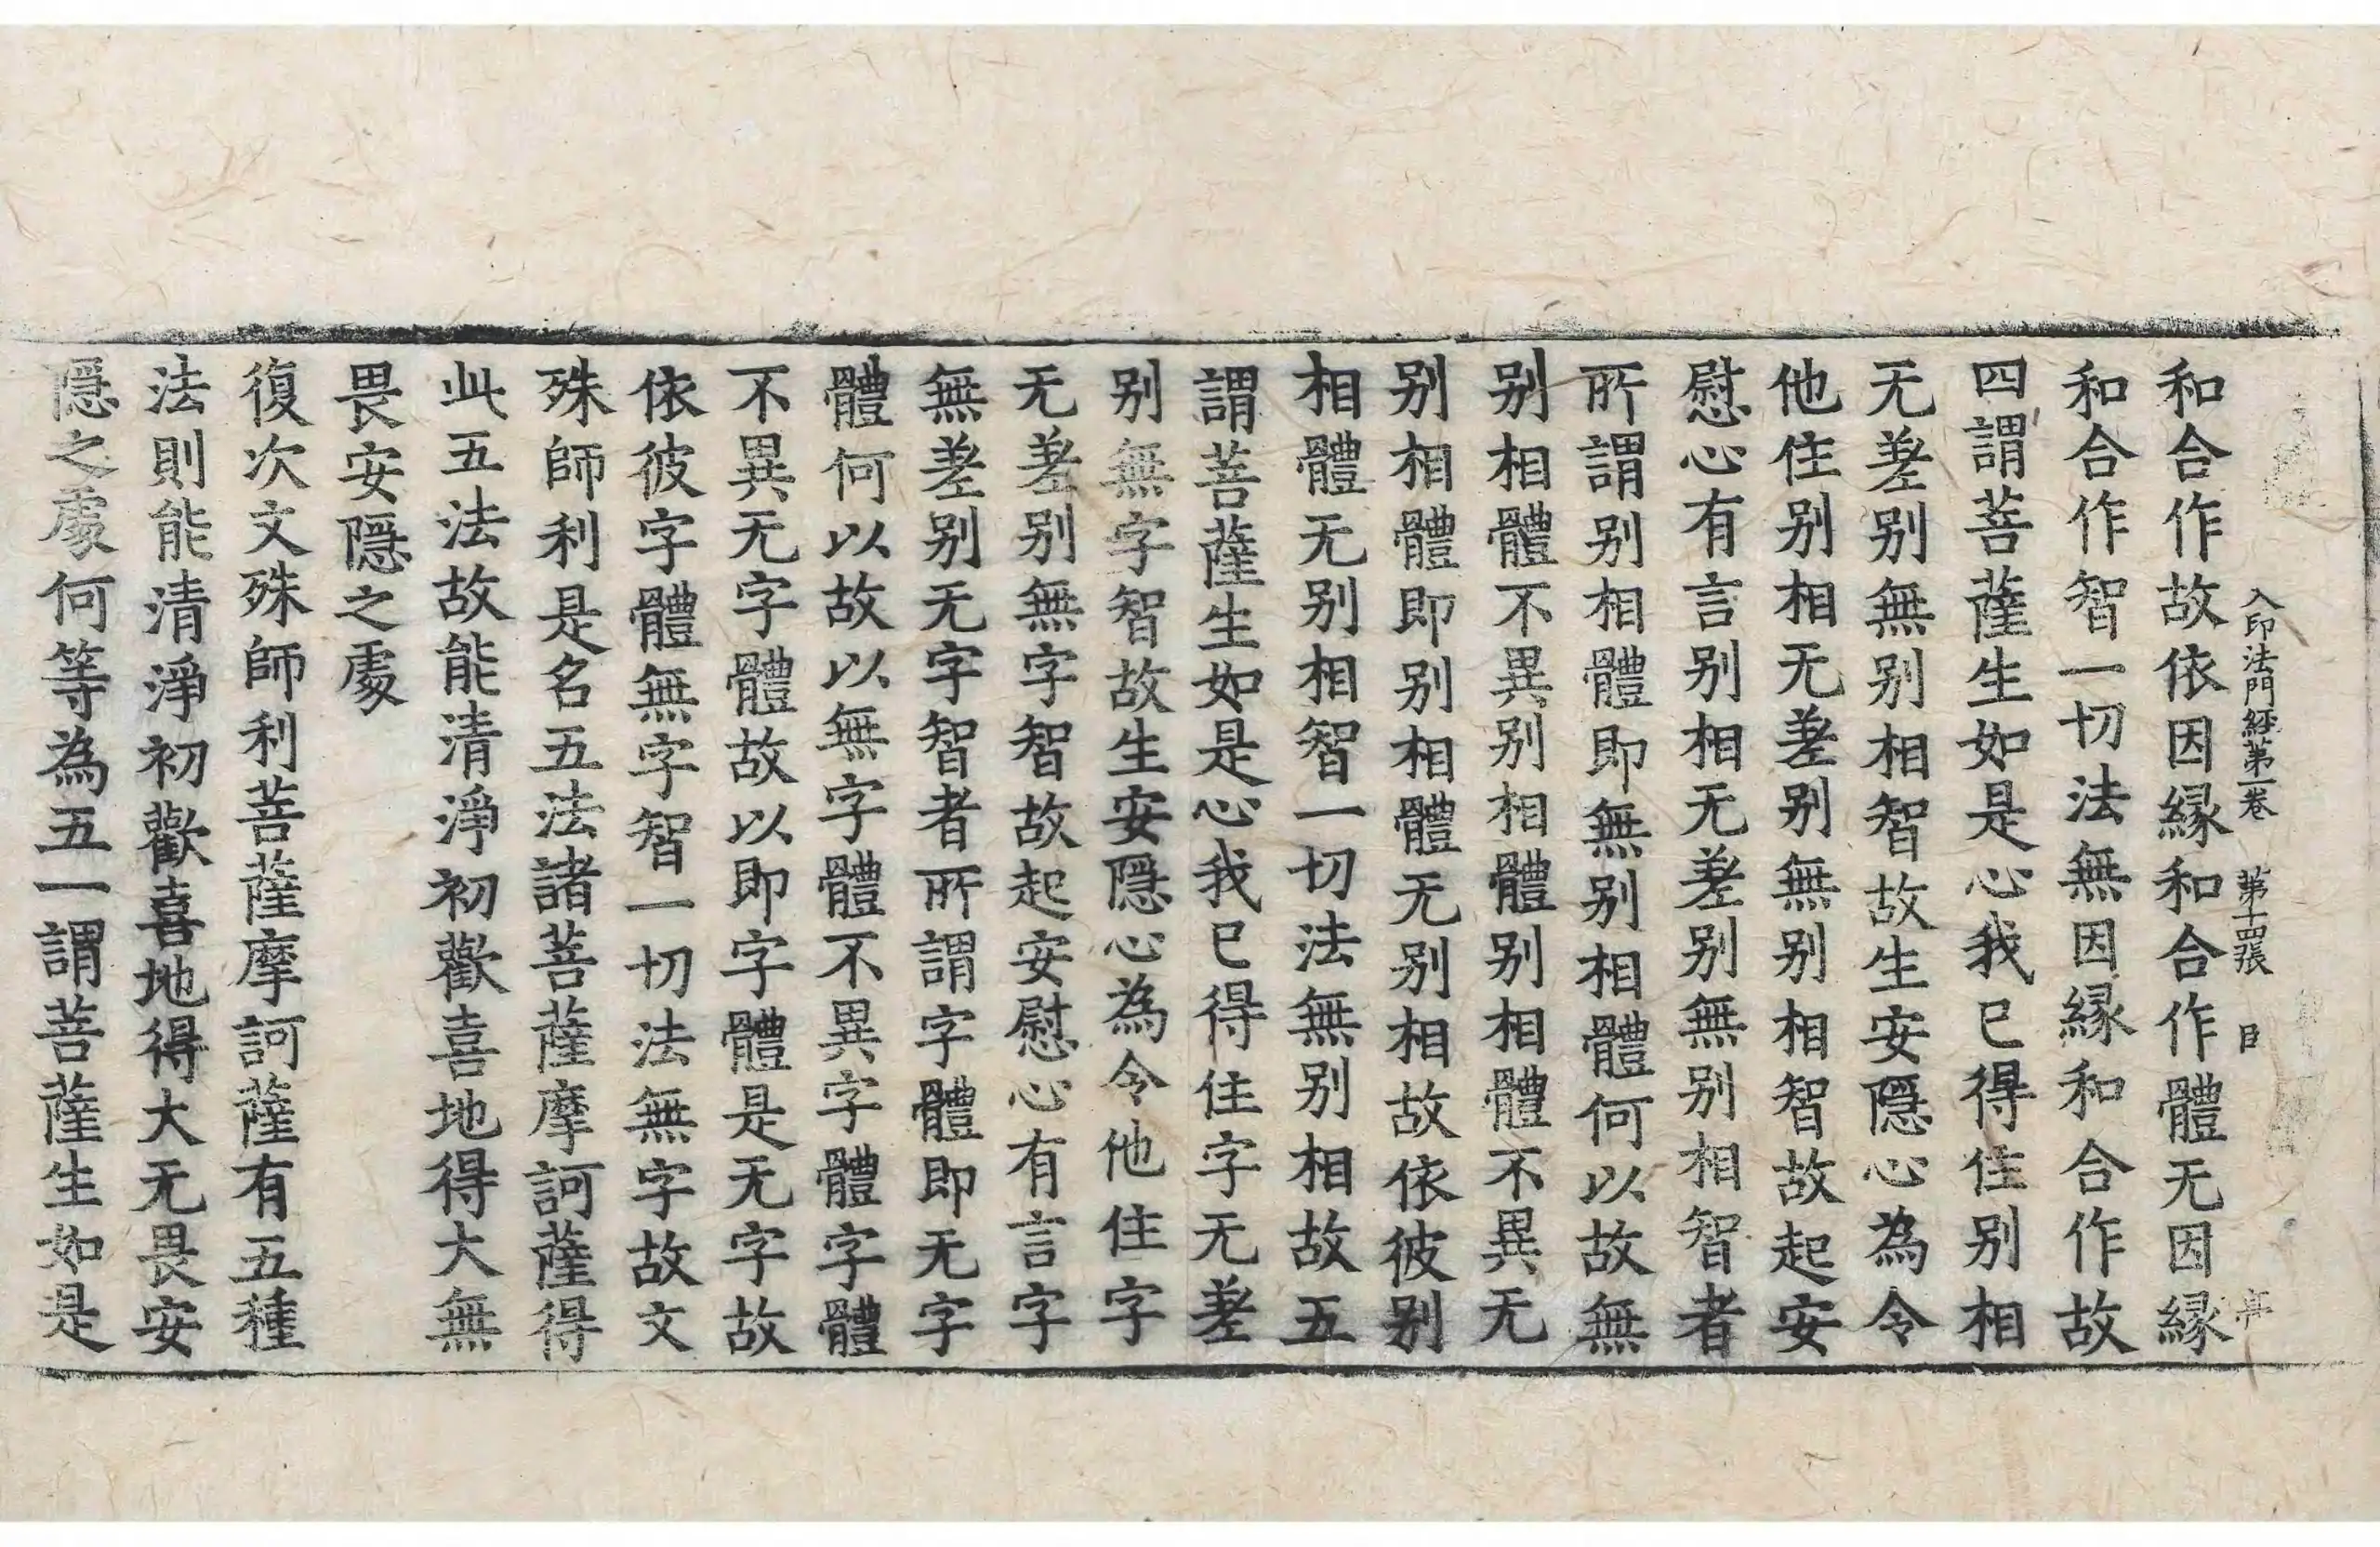 入印法門經第一卷 第十四張 目
和合作故依因縁和合作體无因縁
和合作智一切法無因縁和合作故
四謂菩薩生如是心我已得住别相
无差别無别相智故生安隱心為令
他住别相无差别無别相智故起安
慰心有言别相无差别無别相智者
所謂别相體即無别相體何以故無
别相體不異别相體别相體不異无
别相體即别相體无别相故依彼别
相體无别相智一切法無别相故五
謂菩薩生如是心我已得住字无差
别無字智故生安隱心為令他住字
无差别無字智故起安慰心有言字
無差别无字智者所謂字體即无字
體何以故以無字體不異字體字體
不異无字體故以即字體是无字故
依彼字體無字智一切法無字故文
殊師利是名五法諸菩薩摩訶薩得
此五法故能清淨初歡喜地得大無
畏安隱之處
復次文殊師利菩薩摩訶薩有五種
法則能清淨初歡喜地得大无畏安
隱之處何等為五一謂菩薩生如是